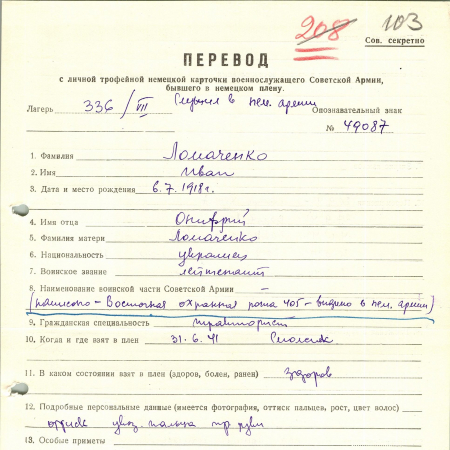 208 103
Сов. секретно
ПЕРЕВОД
с личной трофейной немецкой карточки военнослужащего Советской Армии,
бывшего в немецком плену.
Лагерь 336/VII Служил в нем. армии Опознавательный знак
№ 49087
1. Фамилия Ломаченко
2. Имя Иван
3. Дата и место рождения 6.7.1918г.
4. Имя отца Онифрий
5. Фамилия матери Ломаченко
6. Национальность украинец
7. Воинское звание лейтенант
8. Наименование воинской части Советской Армии —
(написано - Восточная охранная рота 405 - видимо в нем. армии)
9. Гражданская специальность тракторист
10. Когда и где взят в плен 31.6.41 Смоленск
11. В каком состоянии взят в плен (здоров, болен, ранен) здоров
12. Подробные персональные данные (имеется фотография, оттиск пальцев, рост, цвет волос)
оттиск указ. пальца пр руки
13. Особые приметы